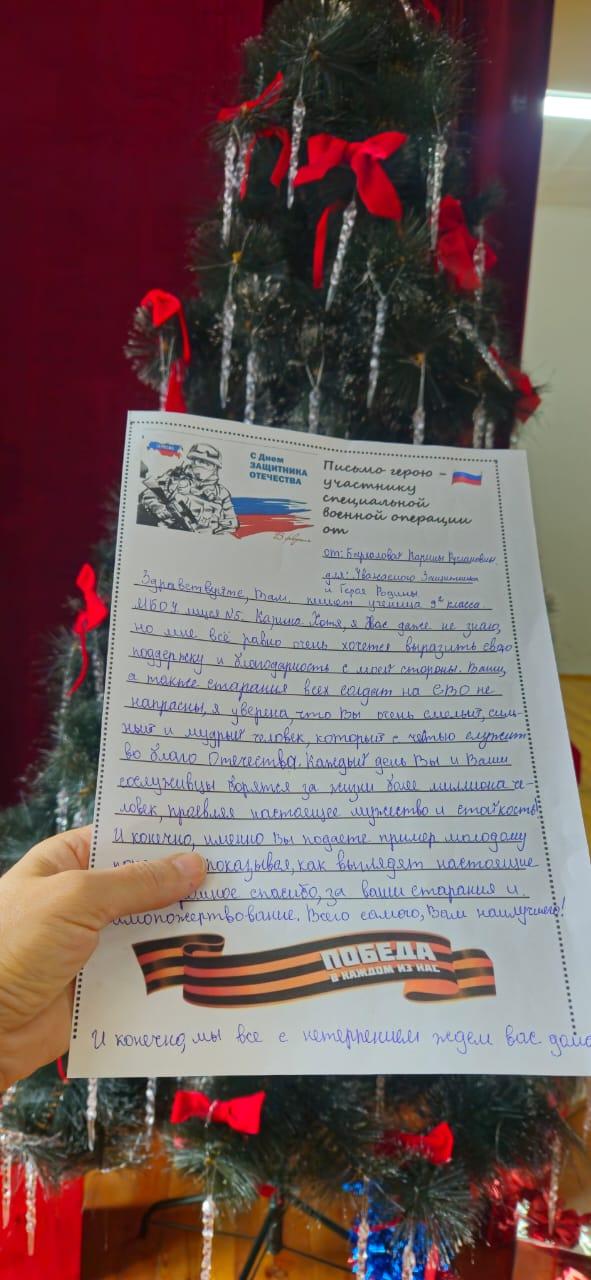 С Днем
ЗАЩИТНИКА
ОТЕЧЕСТВА
Письмо герою -
участнику
специальной
военной операции
от
от: Карины Руслановны
для: Уважаемого Защитника
и Героя Родины
Здравствуйте, Вам пишет ученица 9 класса
МБОУ лицея №5. Карина Хотя, я Вас даже не знаю,
но мне всё равно очень хочется выразить свою
поддержку и благодарность с моей стороны. Ваши,
а также старания всех солдат на СВО не
напрасны, я уверена, что Вы очень смелый, силь-
ный и мудрый человек, который с честью служит
во благо Отечества. Каждый день Вы и Ваши
сослуживцы борятся за жизни более миллиона че-
ловек, проевляя настоящее мужество и стойкость!
И конечно, именно Вы подаете пример молодому
показывая, как выглядят настоящие
спасибо, за ваши старания и
самопожертвование. Всего самого, Вам наилучшего!
ПОБЕДА
В КАЖДОМ ИЗ НАС
И конечно, мы все с нетерпением ждем вас